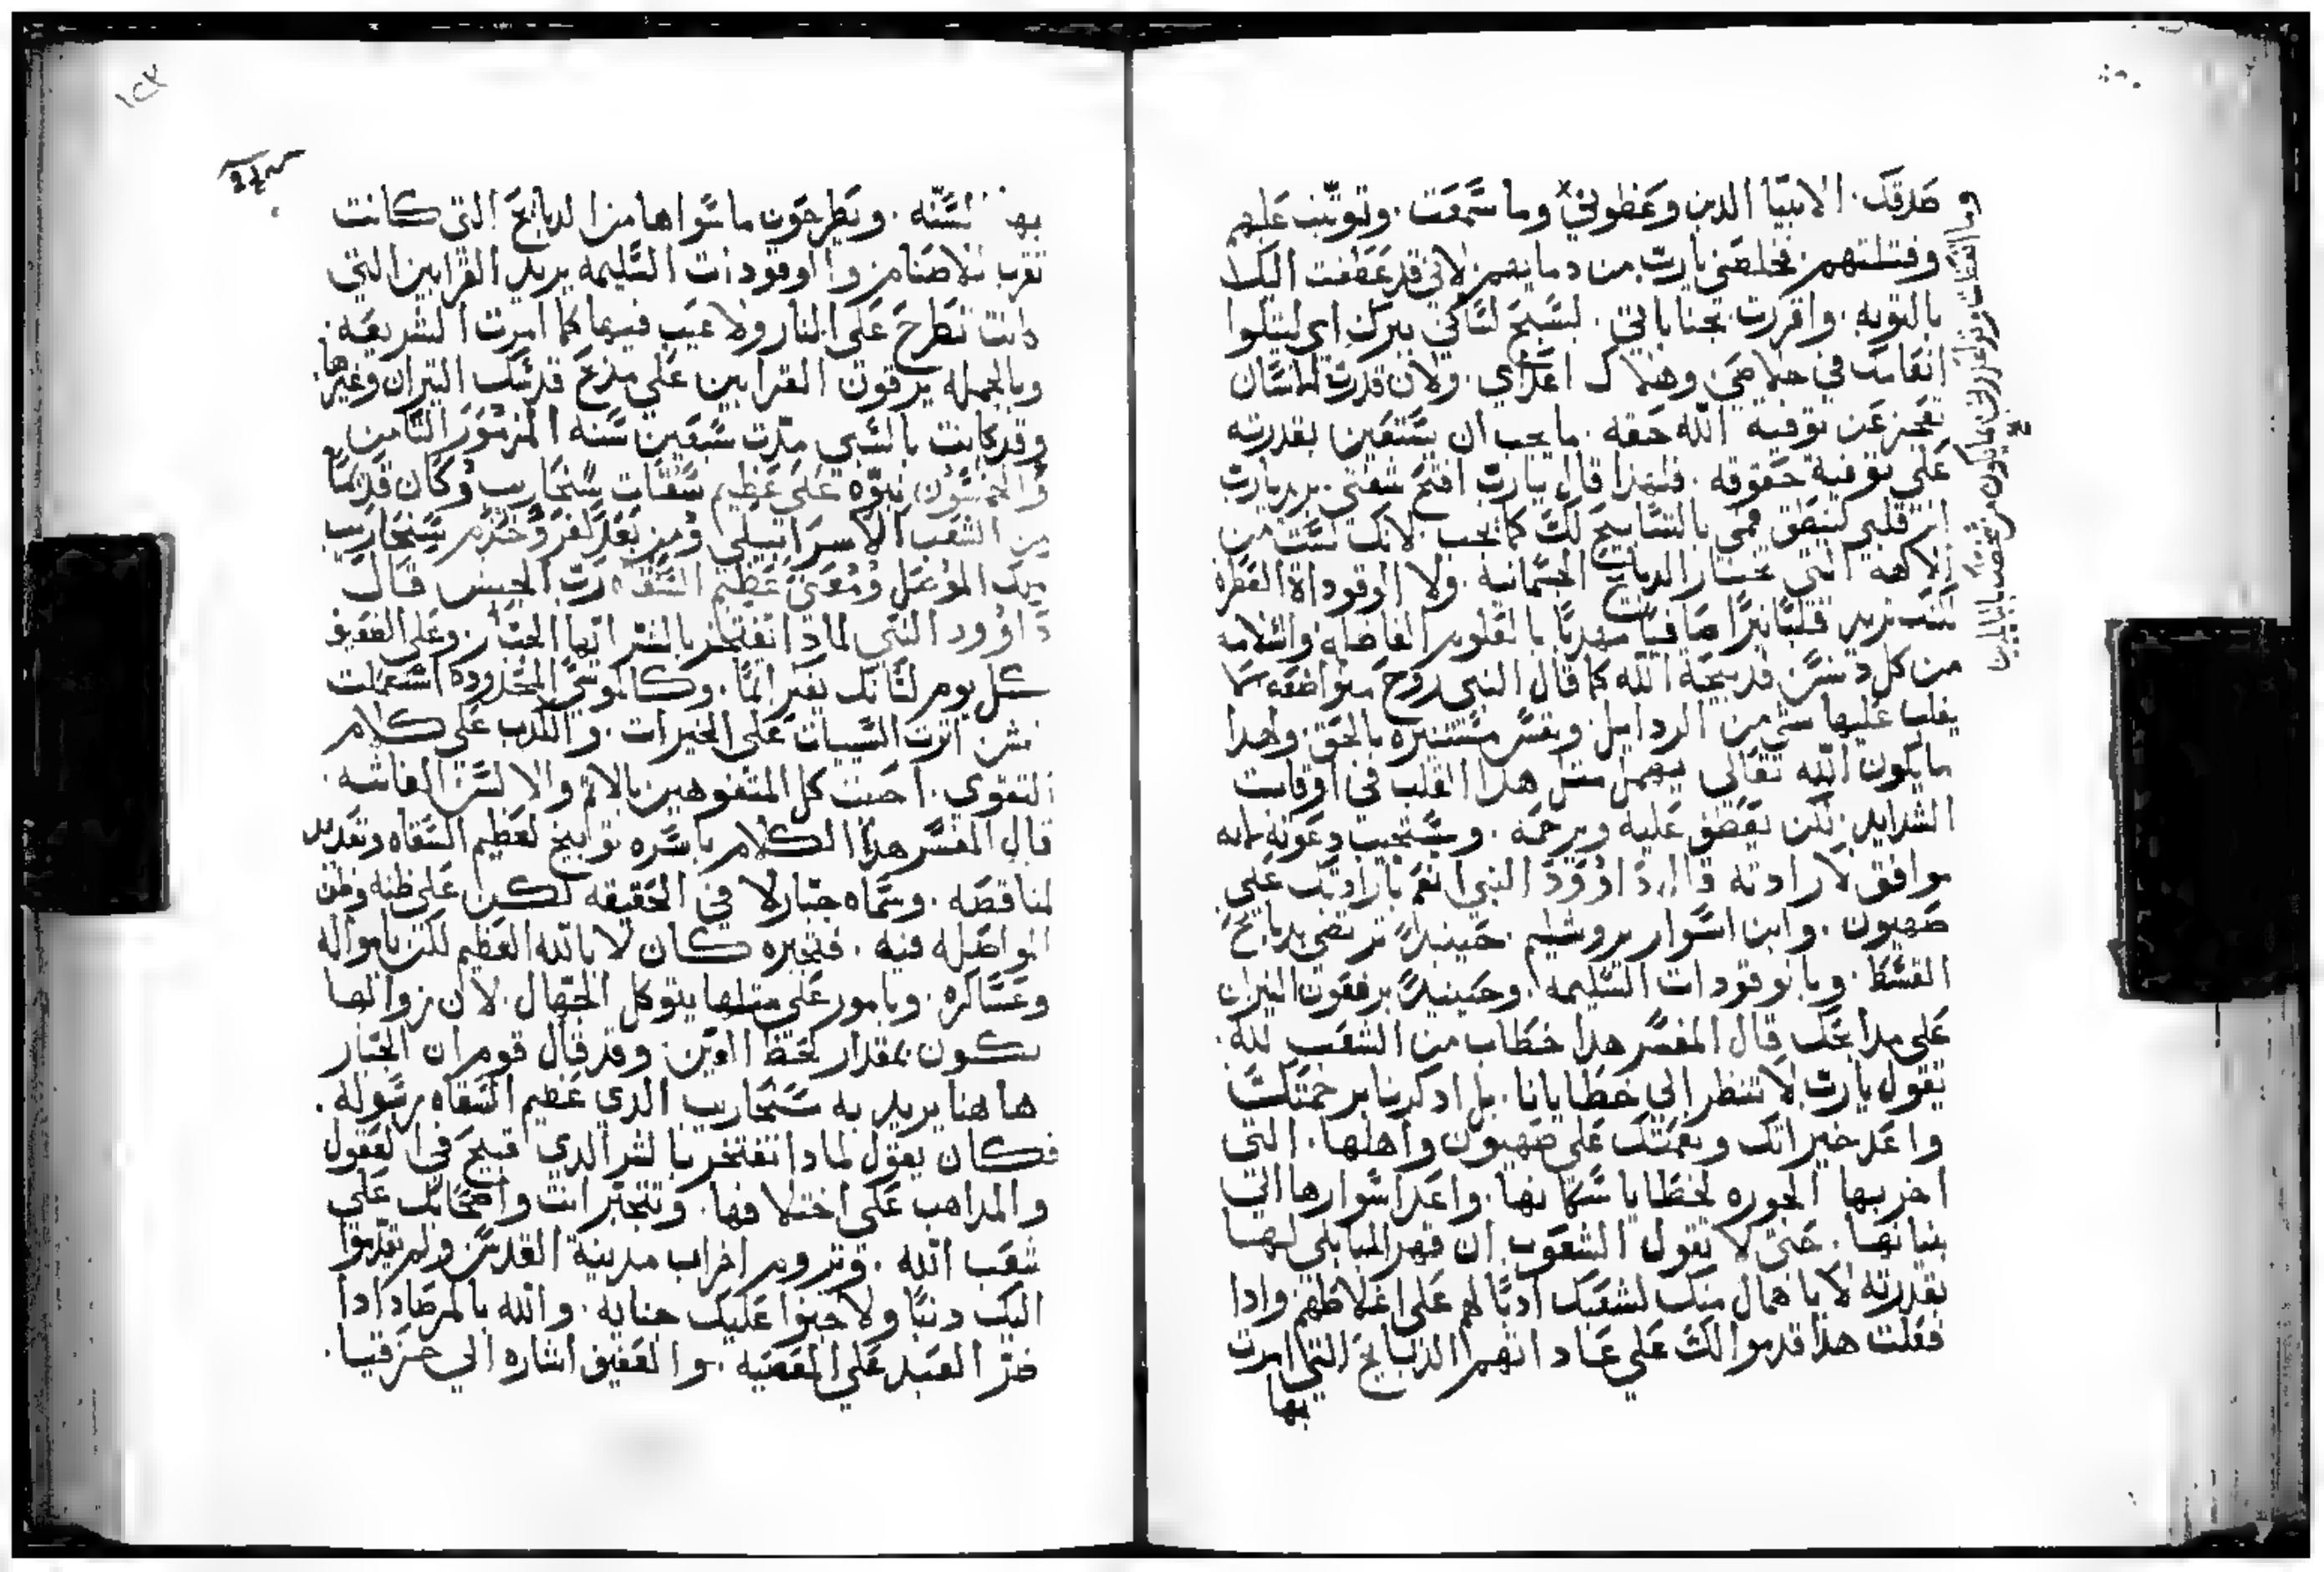 وصدقك. الانبيا الدين وعظوني وما سمعت. وتوثبت عليهم
وقتلتهم. فخلصني يارب من دمايهم لاني قد عطفت اليك
بالتوبه. واقررت بجناياتي. ليسبح لساني ببرك اي ليتلوا
انعامك في خلاصي وهلاك اعداي. ولان قدرت الانسان
تعجز عن توفيه الله حقه. ما يجب ان يستعين بقدرته
على توفية حقوقه. فلهذا قال يارب افتح شفتي. يريد يارب
قلبي لينطق فمي بالتسابيح لك كما يجب لانك لست من
الالهه التي تختار الدبايح الجسمانيه. ولا الوقوداة القطره
لكنك تريد قلبا نيرا صافيا مهدبا بالعلوم الفاضله والسلامه
من كل دنس فدبيحة الله كما قال النبي روح متواضعه لا
يغلب عليها شي من الردايل ونفس مستنيره بالحق. وهدا
ما يكون الله تعالى يهمل مثل هدا القلب في اوقات
الشدايد. لكن يعطف عليه ويرحمه. ويستجيب دعوته لانه
موافق لارادته قال داوود النبي انعم بارادتك على
صهيون. وابن اسوار يروشليم. حينيد ترتضي بدبايح
القسط. وبالوقودات السليمه. وحينيد يرفعون التيران
على مدابحك قال المفسر هدا خطاب من الشعب لله.
تقول يارب لا تنظر الى خطايانا. بل ادكرنا برحمتك
واعد خيراتك ونعمتك على صهيون واهلها. التي
اخربها الجوره لخطايا سكانها. واعد اسوارها التي
بنيانها. حتى لا تقول الشعوب ان قهر البابلي لها
بقدرته لا باهمال منك لشعبك ادبا لهم على اغلاطهم وادا
فعلت هدا قدموا لك على عاداتهم الدبايح التي امرت
بها
بها السنه. ويطرحون ما سواها من الدبايح التي كانت
تقرب للاصنام والوقودات السليمه يريد القرابين التي
كانت تطرح على النار ولا عيب فيها كما امرت الشريعه.
وبالجمله يرقون القرابين على مدبح قدسك التيران وغيرها.
وقد كانت بالسبي مدت سبعين سنه المزمور التامن
والخمسون نبوه على عظيم سقات سنحاريب وكان قديما
من الشعب الاسراييلي ومن بعد كفر وخدم سنحاريب
ملك الموصل ومعنى عظيم السقاه رب الجيش قال
داوود النبي لمادا تفتخر بالشر ايها الجبار وعلى العفيف
كل يوم لسانك يفتر اثما. وكالموسي المحدوده استعملت
الغش اثرت السييات على الخيرات. والكدب على كلام
التقوى. احببت كل المتفوهين بالاثم والالسن الغاشه.
قال المفسر هدا الكلام باسره توابيخ لعظيم السقاه وتعديد
لمناقصه. وسماه جبار لا في الحقيقه لكن على ظنه وظن
المواصله فيه. فتجبره كان لا بالله العظيم لكن بامواله
وعساكره. وبامور على مثلها يتوكل الجهال. لان زوالها
يكون بمقدار لحظ العين. وقد قال قوم ان الجبار
هاهنا يريد به سنحاريب الدي عظيم السقاه رسوله.
فكان يقول لمادا تفتخر بالشر الدي قبيح في العقول
والمداهب على اختلافها. وتتجبر انت واصحابك على
شعب الله. وتروم اخراب مدينة القدس ولم يقدموا
اليك دنبا ولا جنوا عليك جنايه. والله بالمرصاد ادا
ضر العبد على المعصيه. والعفيف اشاره الى حزقيا.